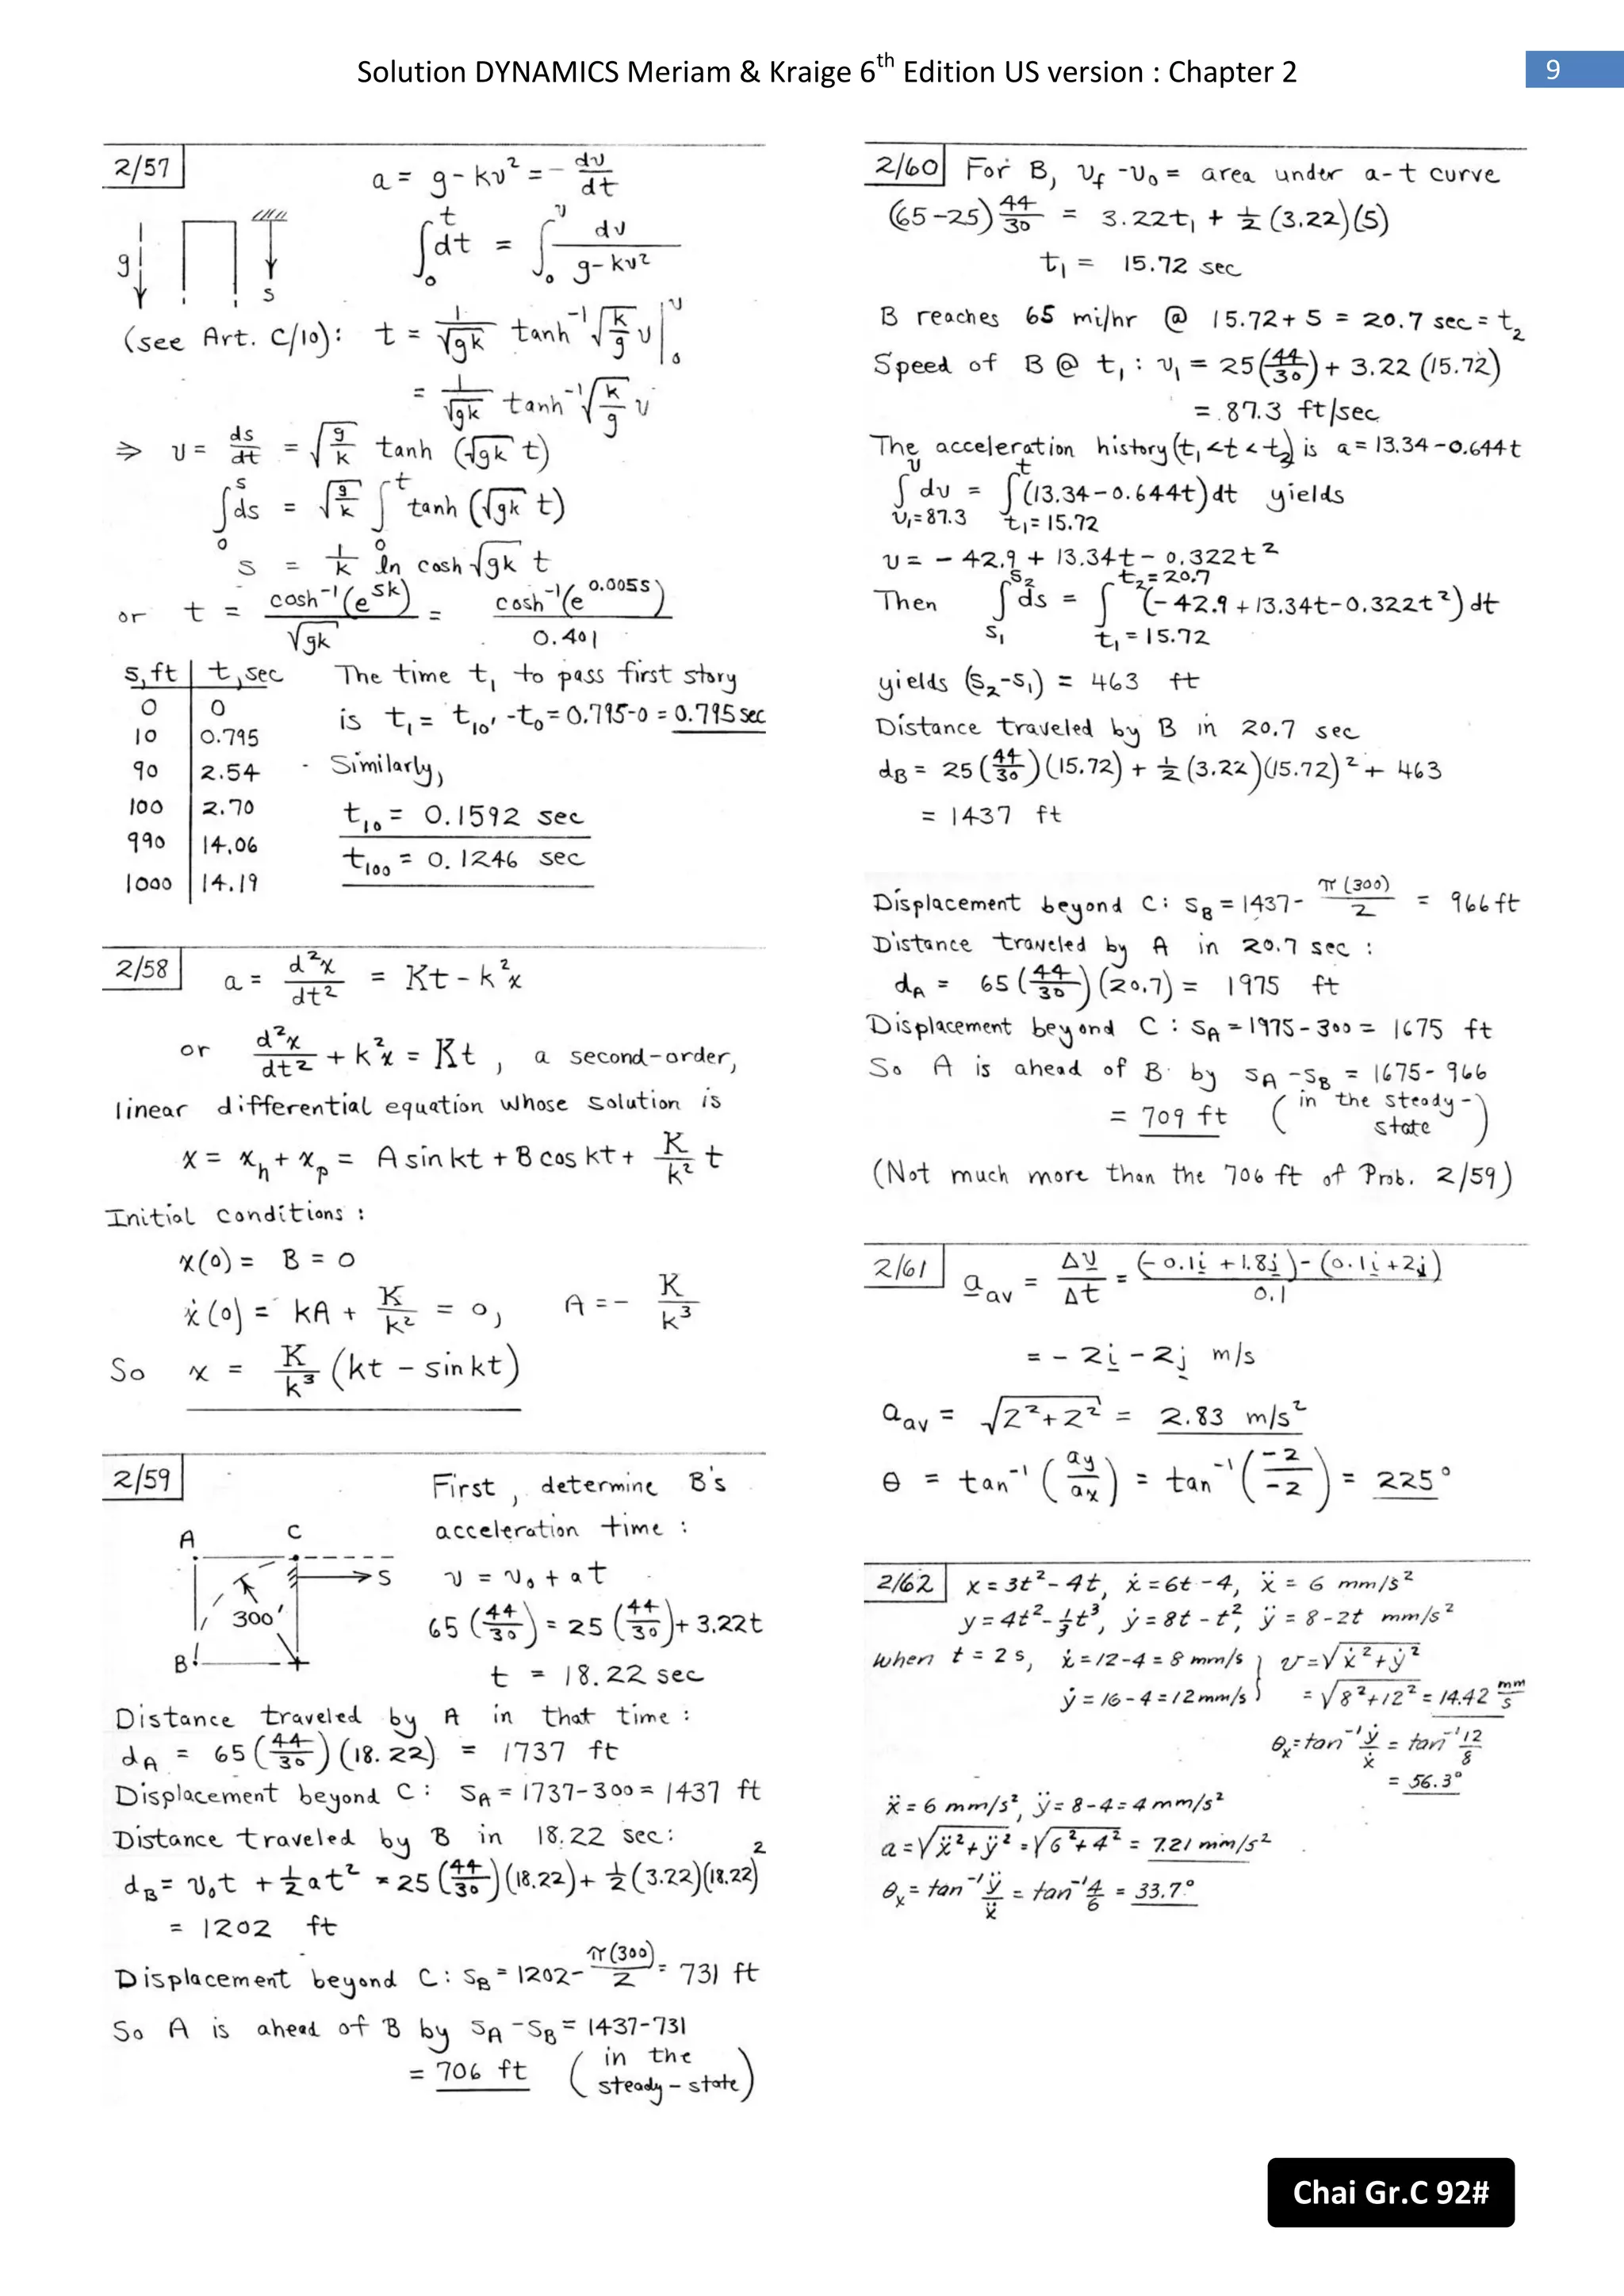 Solution DYNAMICS Meriam & Kraige 6th Edition US version : Chapter 2
9
2/57
a = g - kv² = - dv/dt
g
s
∫₀ᵗ dt = ∫₀ᵛ dv / (g - kv²)
(see Art. C/10): t = 1/√gk tanh⁻¹ √(k/g) v |₀ᵛ
= 1/√gk tanh⁻¹ √(k/g) v
⇒ v = ds/dt = √(g/k) tanh (√gk t)
∫₀ˢ ds = √(g/k) ∫₀ᵗ tanh (√gk t)
s = 1/k ln cosh √gk t
or t = cosh⁻¹(e^sk) / √gk = cosh⁻¹(e^0.005s) / 0.401
s, ft t, sec
0 0
10 0.795
90 2.54
100 2.70
990 14.06
1000 14.19
The time t₁ to pass first story
is t₁ = t₁₀' - t₀ = 0.795-0 = 0.795 sec
Similarly,
t₁₀ = 0.1592 sec
t₁₀₀ = 0.1246 sec
2/58
a = d²x/dt² = Kt - k²x
or d²x/dt² + k²x = Kt, a second-order,
linear differential equation whose solution is
x = x_h + x_p = A sin kt + B cos kt + K/k² t
Initial conditions :
x(0) = B = 0
ẋ(0) = kA + K/k² = 0, A = - K/k³
So x = K/k³ (kt - sin kt)
2/59
A
C
S
300'
B
First, determine B's
acceleration time :
v = v₀ + at
65 (44/30) = 25 (44/30) + 3.22t
t = 18.22 sec
Distance traveled by A in that time :
d_A = 65 (44/30) (18.22) = 1737 ft
Displacement beyond C : s_A = 1737-300 = 1437 ft
Distance traveled by B in 18.22 sec:
d_B = v₀t + ½at² = 25 (44/30)(18.22) + ½(3.22)(18.22)²
= 1202 ft
Displacement beyond C : s_B = 1202 - π(300)/2 = 731 ft
So A is ahead of B by s_A - s_B = 1437-731
= 706 ft (in the steady-state)
2/60 For B, v_f - v₀ = area under a-t curve
(65-25) 44/30 = 3.22t₁ + ½ (3.22)(5)
t₁ = 15.72 sec
B reaches 65 mi/hr @ 15.72+ 5 = 20.7 sec = t₂
Speed of B @ t₁ : v₁ = 25(44/30) + 3.22 (15.72)
= 87.3 ft/sec
The acceleration history (t₁ < t < t₂) is a = 13.34-0.644t
∫ᵛ dv = ∫ᵗ (13.34-0.644t) dt yields
v₁=87.3 t₁=15.72
v = - 42.9 + 13.34t - 0.322t²
Then ∫ ds = ∫ (-42.9 + 13.34t-0.322t²) dt
s₂ t₂=20.7
s₁ t₁=15.72
yields (s₂-s₁) = 463 ft
Distance traveled by B in 20.7 sec
d_B = 25 (44/30)(15.72) + ½ (3.22)(15.72)² + 463
= 1437 ft
Displacement beyond C : s_B = 1437 - π(300)/2 = 966 ft
Distance traveled by A in 20.7 sec :
d_A = 65 (44/30) (20.7) = 1975 ft
Displacement beyond C : s_A = 1975-300 = 1675 ft
So A is ahead of B by s_A - s_B = 1675-966
= 709 ft (in the steady-state)
(Not much more than the 706 ft of Prob. 2/59)
2/61 a_av = Δv/Δt = ((-0.1i + 1.8j) - (0.1i + 2j)) / 0.1
= - 2i - 2j m/s
a_av = √(2²+2²) = 2.83 m/s²
θ = tan⁻¹ (ay/ax) = tan⁻¹ (-2/-2) = 225°
2/62 x = 3t²- 4t, ẋ = 6t-4, ẍ = 6 mm/s²
y = 4t²-⅓t³, ẏ = 8t - t², ÿ = 8-2t mm/s²
When t = 2 s, ẋ = 12-4 = 8 mm/s } v = √(ẋ²+ẏ²)
ẏ = 16-4 = 12 mm/s } = √(8²+12²) = 14.42 mm/s
θx = tan⁻¹ ẏ/ẋ = tan⁻¹ 12/8
= 56.3°
ẍ = 6 mm/s², ÿ = 8-4 = 4 mm/s²
a = √(ẍ²+ÿ²) = √(6²+4²) = 7.21 mm/s²
θx = tan⁻¹ ÿ/ẍ = tan⁻¹ 4/6 = 33.7°
Chai Gr.C 92#